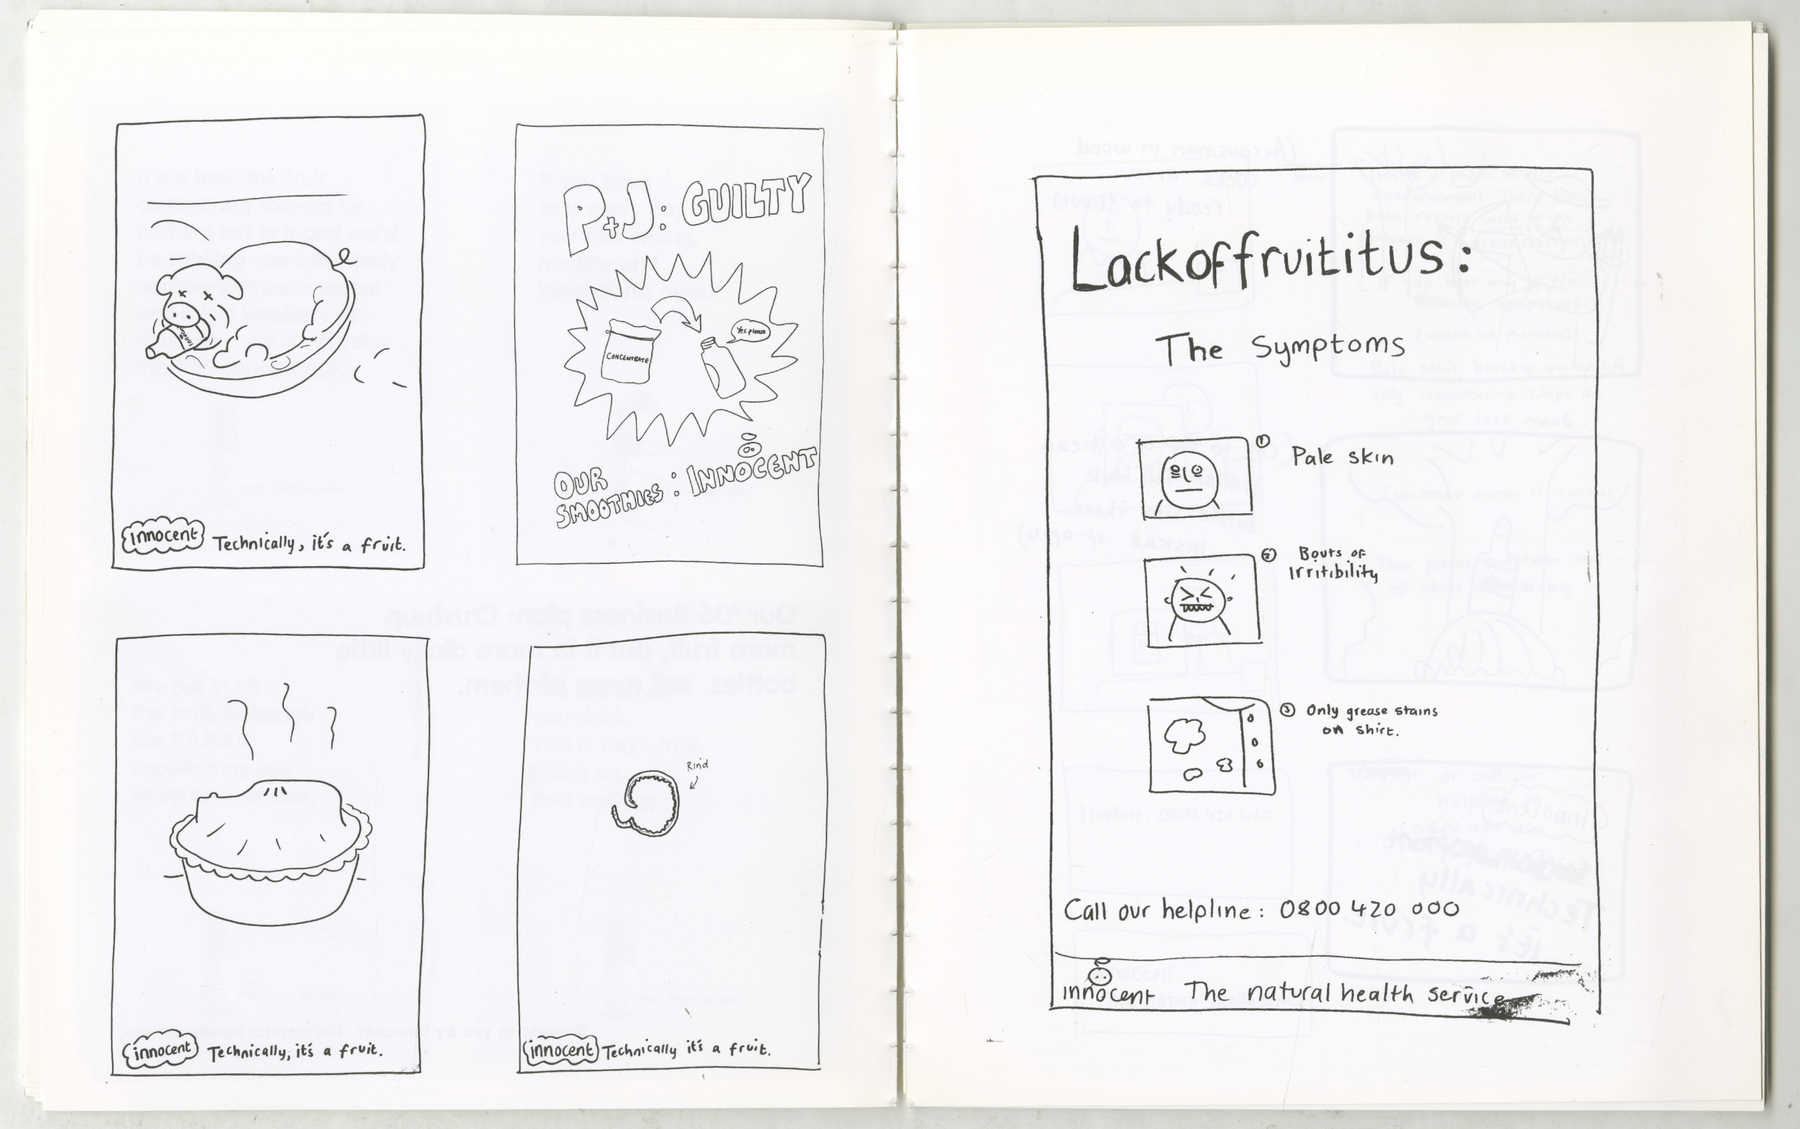 innocent Technically, it's a fruit.
P+J: GUILTY
CONCENTRATE
Yes please
OUR
SMOOTHIES: INNOCENT
innocent Technically, it's a fruit.
Rind
innocent Technically it's a fruit.
Lackoffruititus:
The Symptoms
① Pale skin
② Bouts of
Irritibility
③ Only grease stains
on shirt.
Call our helpline: 0800 420 000
innocent The natural health service